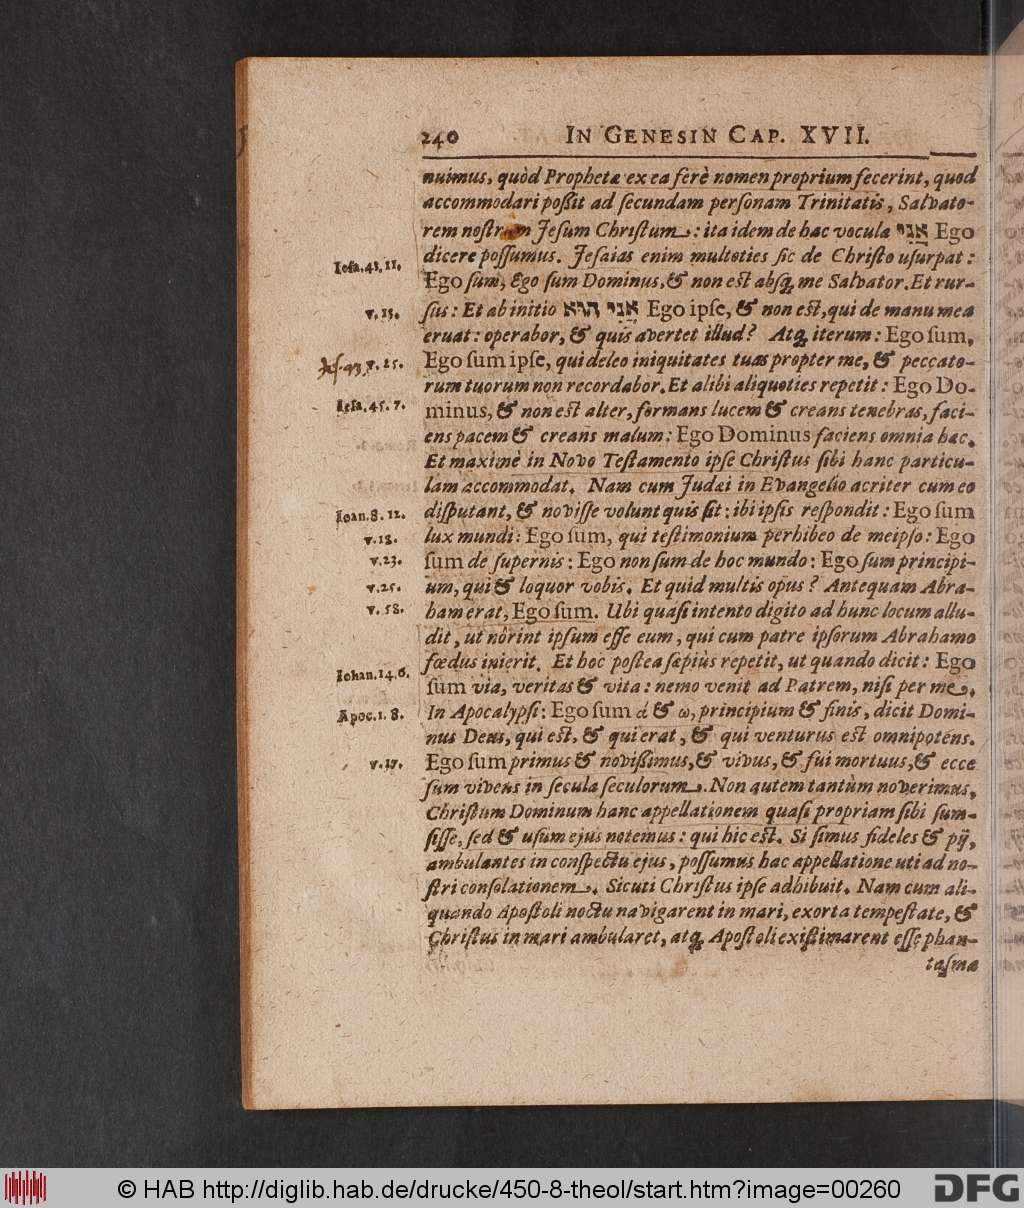 240 IN GENESIN CAP. XVII.
nuimus, quòd Prophetæ ex ea ferè nomen proprium fecerint, quod
accommodari poßit ad ſecundam perſonam Trinitatis, Salvato-
rem noſtrum Jeſum Chriſtum: ita idem de hac vocula אֲנִי Ego
dicere poſſumus. Jeſaias enim multoties ſic de Chriſto uſurpat:
Ieſa.43.11.
Ego ſum, Ego ſum Dominus, & non eſt absq́ me Salvator. Et rur-
ſus: Et ab initio אֲנִי הוּא Ego ipſe, & non eſt, qui de manu mea
v.13.
eruat: operabor, & quis avertet illud? Atq́ iterum: Ego ſum,
Ego ſum ipſe, qui deleo iniquitates tuas propter me, & peccato-
Jeſ.43. v.25.
rum tuorum non recordabor. Et alibi aliquoties repetit: Ego Do-
minus, & non eſt alter, formans lucem & creans tenebras, faci-
Ieſa.45.7.
ens pacem & creans malum: Ego Dominus faciens omnia hæc.
Et maximè in Novo Teſtamento ipſe Chriſtus ſibi hanc particu-
lam accommodat. Nam cum Judæi in Evangelio acriter cum eo
diſputant, & noviſſe volunt quis ſit: ibi ipſis reſpondit: Ego ſum
Ioan.8.12.
lux mundi: Ego ſum, qui teſtimonium perhibeo de meipſo: Ego
v.18.
ſum de ſupernis: Ego non ſum de hoc mundo: Ego ſum principi-
v.23.
um, qui & loquor vobis. Et quid multis opus? Antequam Abra-
v.25.
ham erat, Ego ſum. Ubi quaſi intento digito ad hunc locum allu-
v.58.
dit, ut nôrint ipſum eſſe eum, qui cum patre ipſorum Abrahamo
fœdus inierit. Et hoc poſtea ſæpiùs repetit, ut quando dicit: Ego
Iohan.14.6.
ſum via, veritas & vita: nemo venit ad Patrem, niſi per me.
In Apocalypſi: Ego ſum α & ω, principium & finis, dicit Domi-
Apoc.1.8.
nus Deus, qui eſt, & qui erat, & qui venturus eſt omnipotens.
Ego ſum primus & novißimus, & vivus, & fui mortuus, & ecce
v.17.
ſum vivens in ſecula ſeculorum. Non autem tantùm noverimus,
Chriſtum Dominum hanc appellationem quaſi propriam ſibi ſum-
ſiſſe, ſed & uſum ejus notemus: qui hic eſt. Si ſimus fideles & pij,
ambulantes in conſpectu ejus, poſſumus hac appellatione uti ad no-
ſtri conſolationem. Sicuti Chriſtus ipſe adhibuit. Nam cum ali-
quando Apoſtoli noctu navigarent in mari, exorta tempeſtate, &
Chriſtus in mari ambularet, atq́ Apoſtoli exiſtimarent eſſe phan-
taſma
© HAB http://diglib.hab.de/drucke/450-8-theol/start.htm?image=00260
DFG